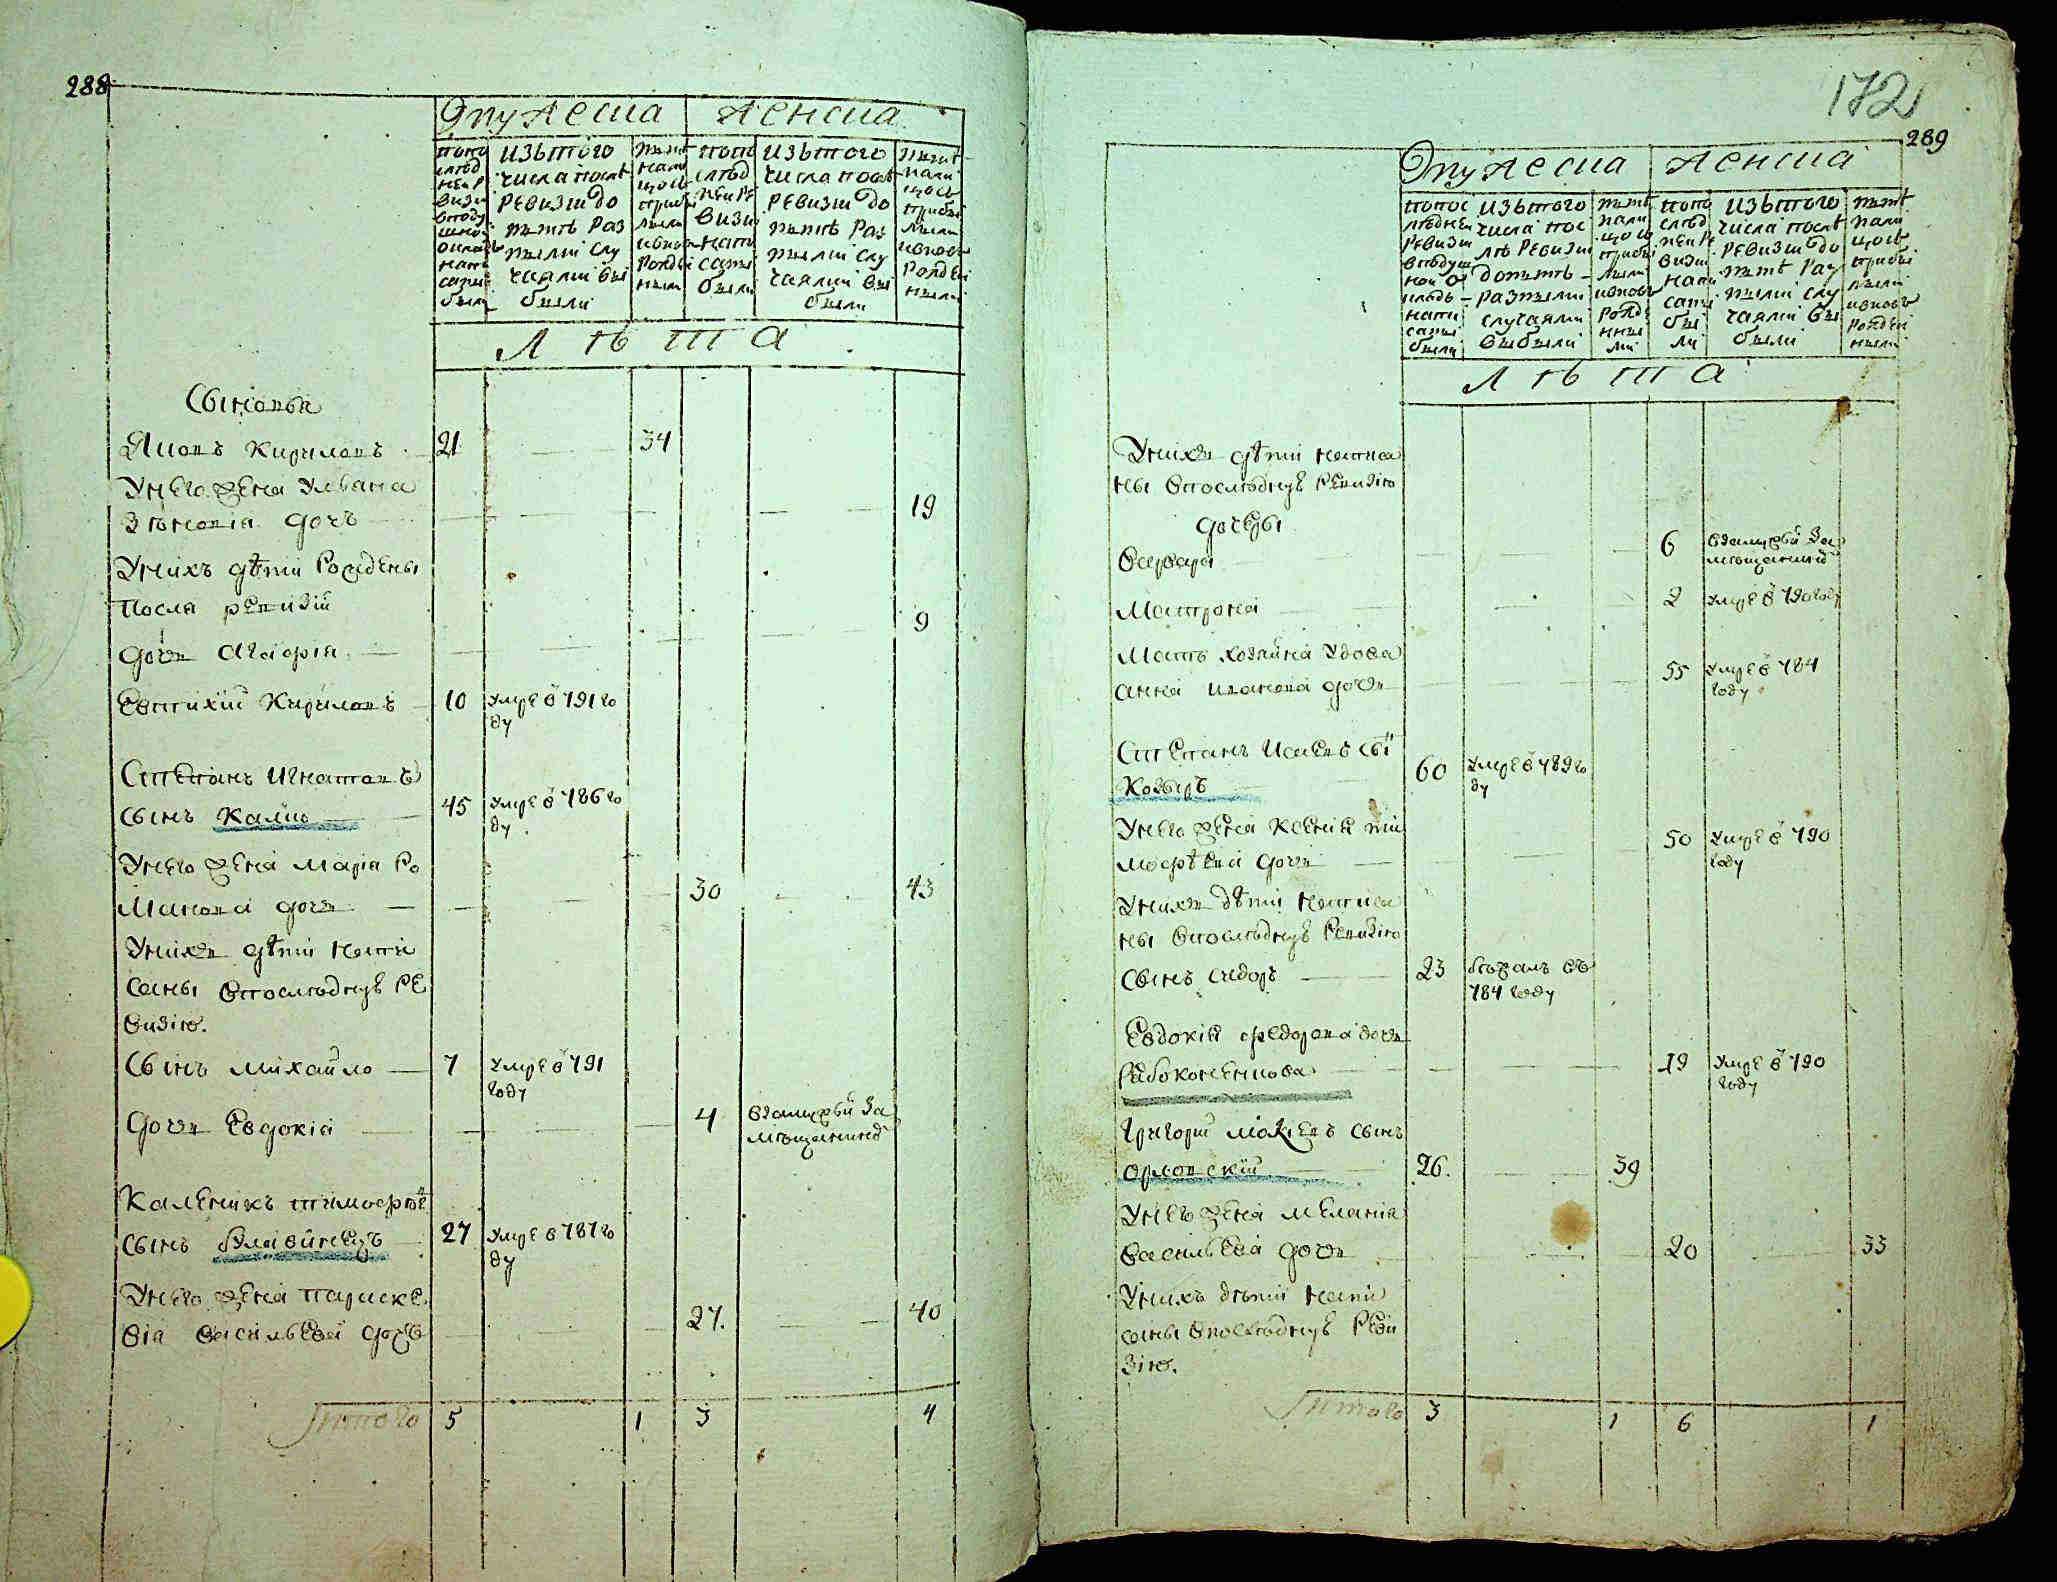 288
Мужеска
Женска
попо
слѣд
ней р
визи
в поду
шной
окладъ
напи
саны
были
изътого
числа послѣ
ревизии до
нынѣ раз
ными слу
чаями вы
были
нынѣ
нали
цо съ
прибы
лыми
и внов
рожде
ными
попо
слѣд
ней ре
визи
напи
саны
были
изътого
числа послѣ
ревизии до
нынѣ раз
ными слу
чаями вы
были
нынѣ
нали
цо съ
прибы
лыми
и вновь
рожден
ными
Лѣта
Сыновья
Яковъ Кириловъ 21 34
Унего жена Ульяна
Зѣновiя дочь 19
Унихъ дѣти рождены
после ревизiи
дочь Агафiя 9
Евтихiй Кириловъ 10 умре в 791 го
ду
Степанъ Игнатовъ
сынъ 45 умре в 786 го
ду
Унего жена Марiя Ро
манова дочь 30 43
Унихъ дѣти напи
саны впослѣдную ре
визiю.
Сынъ Михайло 7 умре в 791
году
Дочь Евдокiя 4 взамужъи за
мѣщанином
Каленикъ Тимофѣе
сынъ Булавинецъ 27 умре в 787 го
ду
Унего жена Параске
вiя Васильева дочь 27. 40
Итого 5 1 3 4
172
289
Мужеска
Женска
попос
лѣдней
ревизи
в подуш
ной о
кладъ
напи
саны
были
изътого
числа пос
лѣ ревизии
до нынѣ
разными
случаями
выбыли
нынѣ
нали
цо съ
прибы
лыми
и вновь
рожде
нны
ми
попо
слѣд
ней ре
визи
напи
саны
бы
ли
изътого
числа послѣ
ревизии до
нынѣ раз
ными слу
чаями вы
были
нынѣ
нали
цо съ
прибы
лыми
и вновь
рожден
ными
Лѣта
Унихъ дѣти написа
ны впослѣдную ревизiю
дочеры
Варвара 6 взамужъи за
мѣщанином
Матрона 2 умре в 790 году
Мать хозяина удова
Анна Иванова дочь 55 умре в 784
году
Степанъ Исаевъ сы
Козыръ 60 умре в 789 го
ду
Унего жена Ксенiя Ти
мофѣева дочь 50 умре в 790
году
Унихъ дѣти написа
ны впослѣдную ревизiю
Сынъ Сидоръ 23 бѣжалъ въ
784 году
Евдокiя Федорова дочь
Рабоконенкова 19 умре в 790
году
Григорiй Моисеевъ сынъ
Орловскiй 26. 39
Унего жена Меланiя
Васильева дочь 20 33
Унихъ дѣти напи
саны впослѣдную реви
зiю.
Итого 3 1 6 1